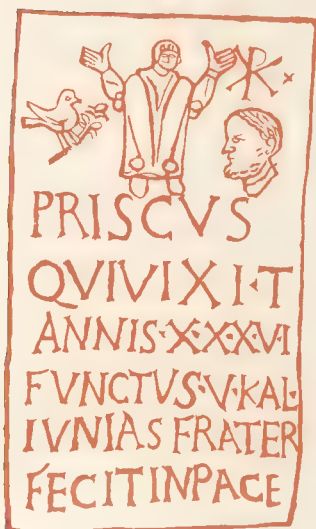 PRISCVS
QVIVIXI·T
ANNIS·X·X·X·VI
FVNCTVS·V·KAL·
IVNIAS FRATER
FECITINPACE